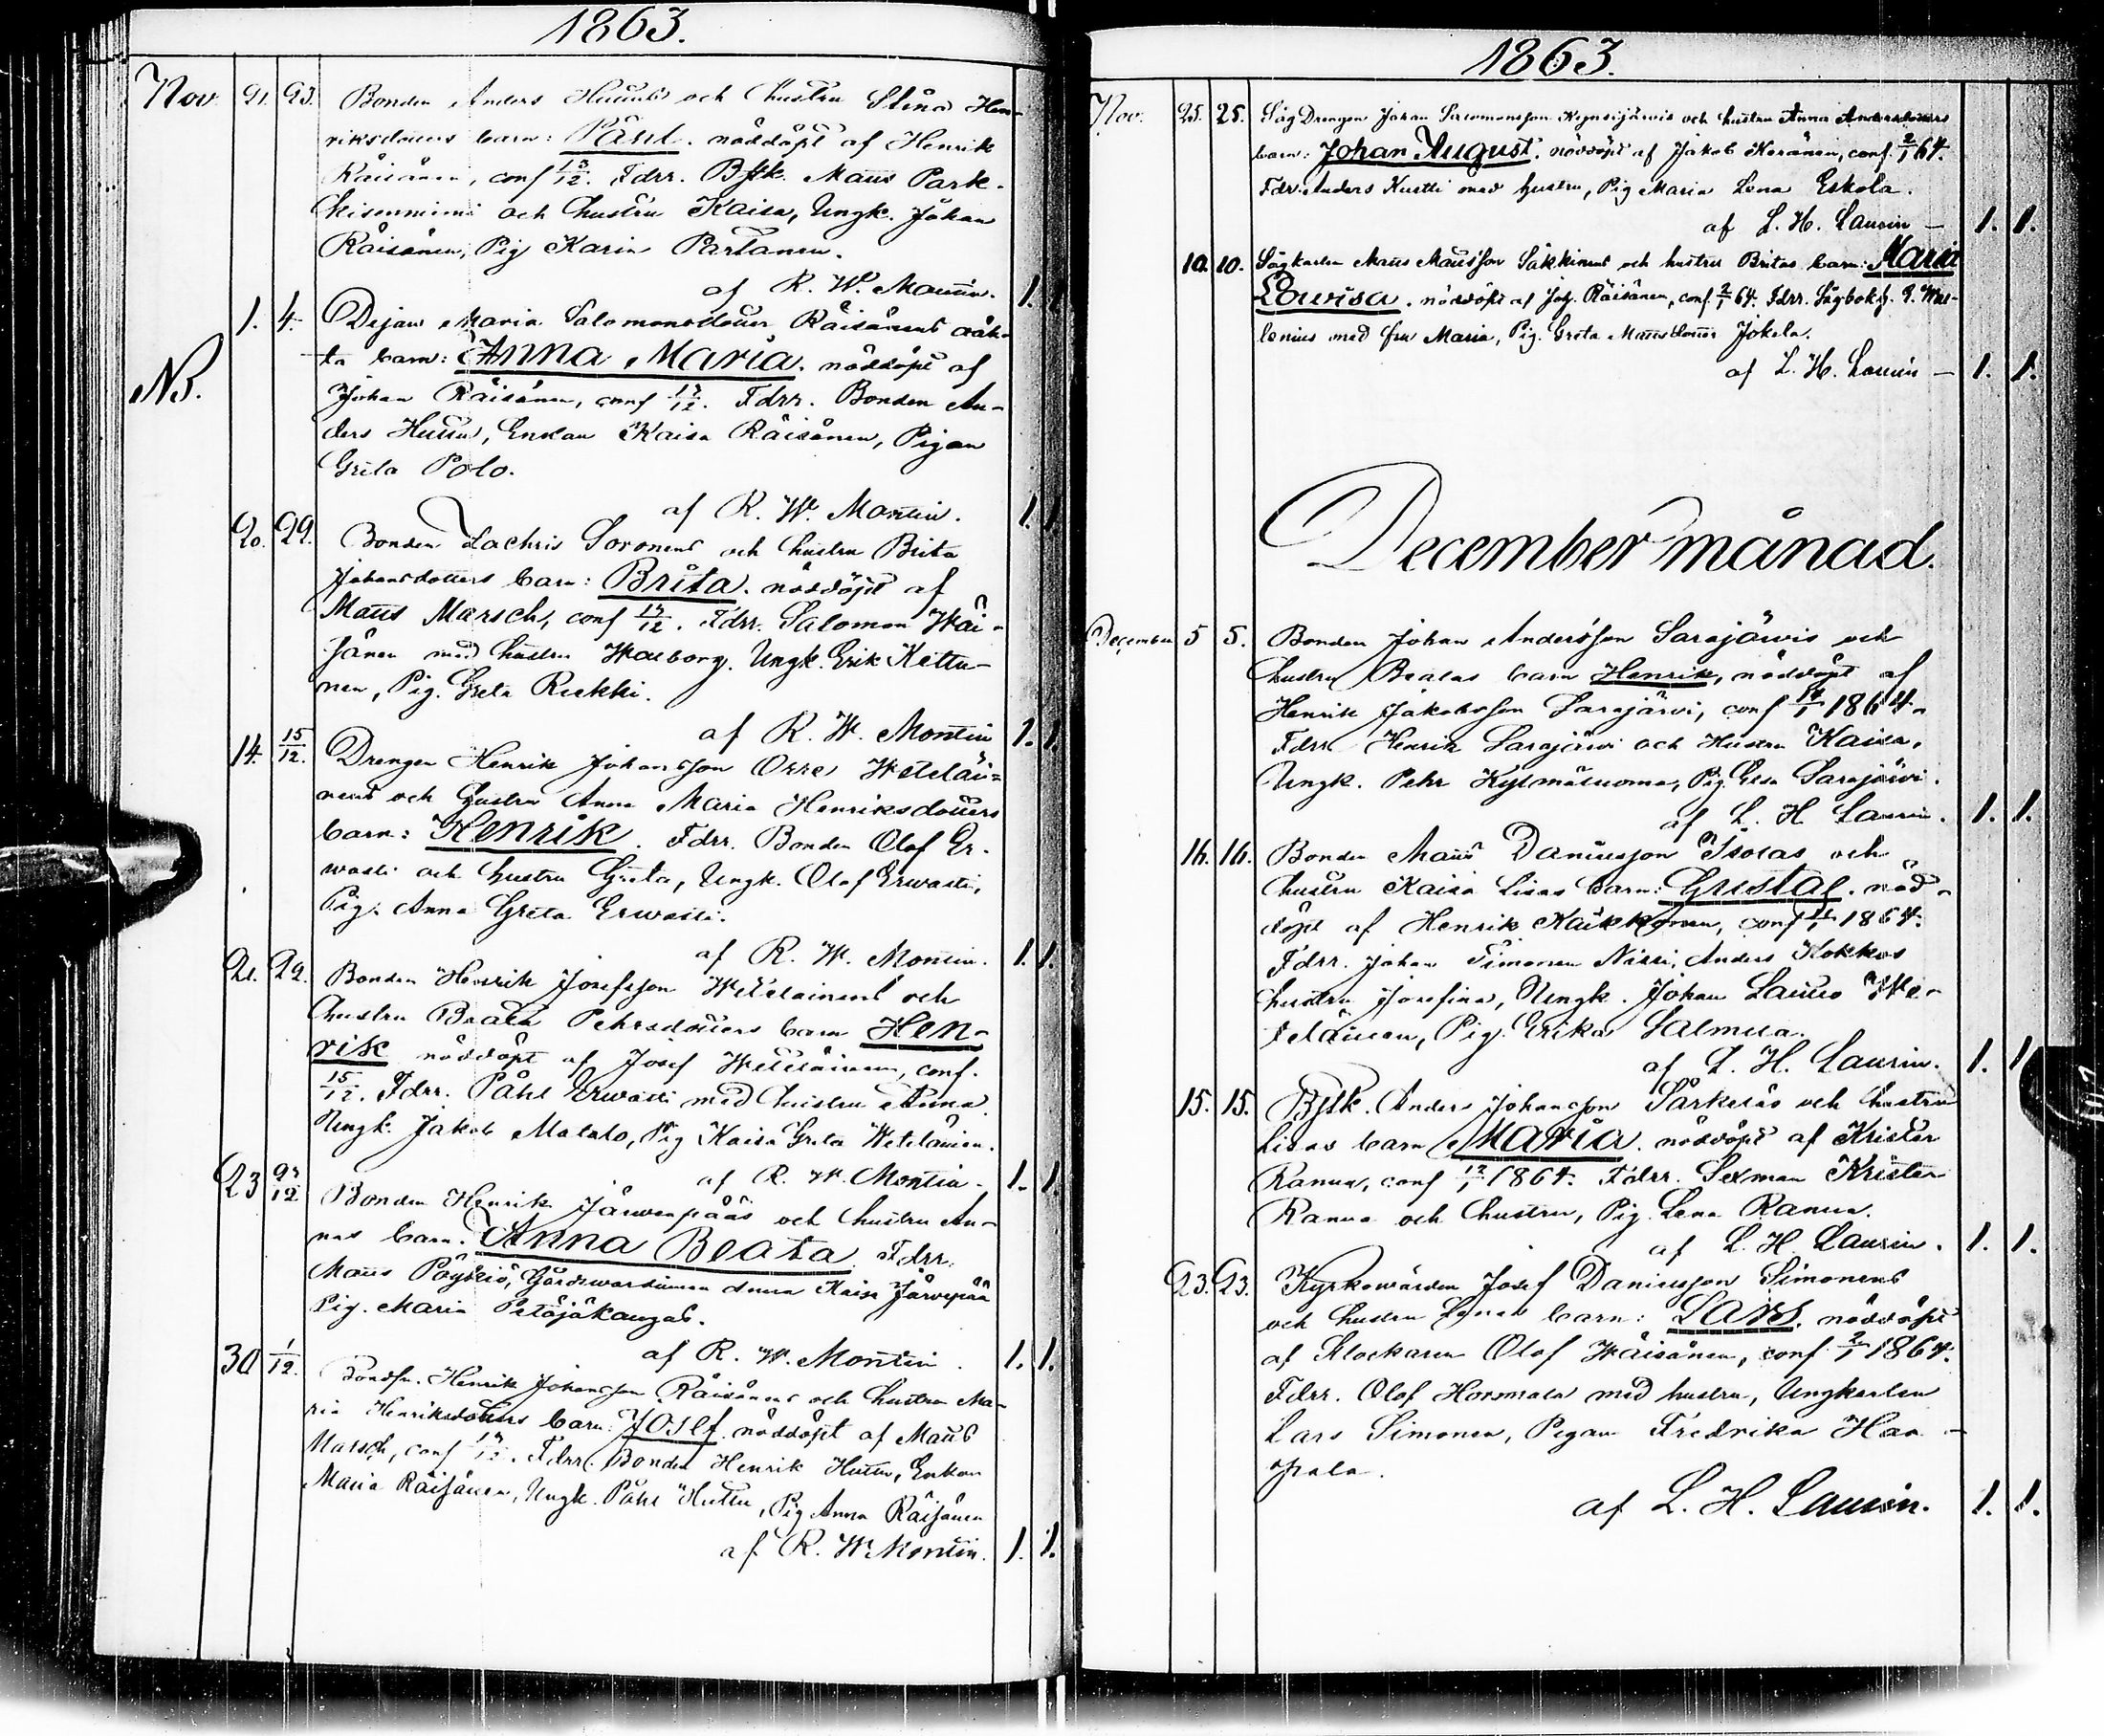 1863.
Nov. 21. 23. Bonden Anders Huttus och hustru Stina Hen-
riksdotters barn: Påhl. nöddöpt af Henrik
Räisänen, conf 13/12. Fdrr. Bfstk. Matts Park-
kisenniemi och hustru Kaisa, Ungk. Johan
Räisänen, Pig Karin Partanen.
af R. W. Montin. 1. 1.
1. 4. Pigan Maria Salomonsdotter Räisänens oäk-
NB. ta barn: Anna Maria. nöddöpt af
Johan Räisänen, conf 13/12. Fdrr. Bonden An-
ders Huttu, Enkan Kaisa Räisänen, Pigan
Greta Polo.
af R. W. Montin. 1. 1.
20. 29. Bonden Zachris Soronens och hustru Brita
Johansdotters barn: Brita. nöddöpt af
Matts Marsch, conf 13/12. Fdrr. Salomon Wäi-
sänen med hustru Walborg. Ungk. Erik Kettu-
nen, Pig. Greta Rukki.
af R. W. Montin 1. 1.
14. 15/12. Drengen Henrik Johansson Orre Weteläi-
nens och hustru Anna Maria Henriksdotters
barn: Henrik. Fdrr. Bonden Olof Er-
wasti och hustru Greta, Ungk. Olof Erwasti,
Pig. Anna Greta Erwasti.
af R. W. Montin. 1. 1.
21. 29. Bonden Henrik Josefsson Weteläinens och
hustru Beata Pehrsdotters barn Hen-
rik nöddöpt af Josef Weteläinen, conf.
15/12. Fdrr. Påhl Erwasti med hustru Anna.
Ungk. Jakob Matalo, Pig Kaisa Greta Weteläinen.
af R. W. Montin. 1. 1.
23 27/12 Bonden Henrik Järwenpääs och hustru An-
nas barn. Anna Beata. Fdrr.
Matts Pöyskiö, Gårdswärdinnan Anna Kaisa Järwepää
Pig. Maria Petäjäkangas.
af R. W. Montin. 1. 1.
30 1/12. Bondsn. Henrik Johansson Räisänens och hustru Ma-
ria Henriksdotters barn: Josef. nöddöpt af Matts
Marsch, conf 13/12. Fdrr. Bonden Henrik Huttu, Enkan
Maria Räisänen, Ungk. Påhl Huttu, Pig Anna Räisänen
af R. W. Montin. 1. 1.
1863.
Nov. 25. 25. Såg Drengen Johan Salomonsson Kynsijärwis och hustru Anna Andersdotters
barn: Johan August. nöddöpt af Jakob Keränen, conf. 2/1 64.
Fdrr. Anders Kustti med hustru, Pig Maria Lena Eskola.
af L. H. Laurin – 1. 1.
10. 10. Sågkarlen Matts Mattsson Säkkinens och hustru Britas barn: Maria
Lowisa. nöddöpt af Joh. Räisänen, conf. 2/1 64. Fdrr. Sågbokh. G. Was-
lenius med fru Maria, Pig. Greta Mattsdotter Jokela.
af L. H. Laurin – 1. 1.
December månad.
December 5 5. Bonden Johan Andersson Sarajärwis och
hustru Beatas barn Henrik, nöddöpt af
Henrik Jakobsson Sarajärwi, conf 14/1 1864.
Fdrr Henrik Sarajärwi och Hustru Kaisa,
Ungk. Pehr Kylmäluoma, Pig. Elsa Sarajärwi.
af L. H. Laurin. 1. 1.
16. 16. Bonden Matts Danielsson Isolas och
hustru Kaisa Lisas barn: Gustaf. nöd-
döpt af Henrik Kaukkonen, conf 1864.
Fdrr. Johan Simonen Nissi, Anders Kokkos
hustru Josefina, Ungk. Johan Launo We-
teläinen, Pig. Erika Salmela.
af L. H. Laurin. 1. 1
15. 15. Bfstk. Anders Johansson Särkeläs och hustru
Lisas barn Maria. nöddöpt af Krister
Ranua, conf 12/1 1864. Fdrr. Sexman Krister
Ranua och hustru, Pig. Lena Ranua.
af L. H. Laurin. 1. 1.
23. 23. Kyrkowärden Josef Danielsson Simonens
och hustru Lenas barn: Lars. nöddöpt
af Klockaren Olof Wäisänen, conf 2/1 1864.
Fdrr. Olof Hormala med hustru, Ungkarlen
Lars Simonen, Pigan Fredrika Haa-
pala.
af L. H. Laurin. 1. 1.